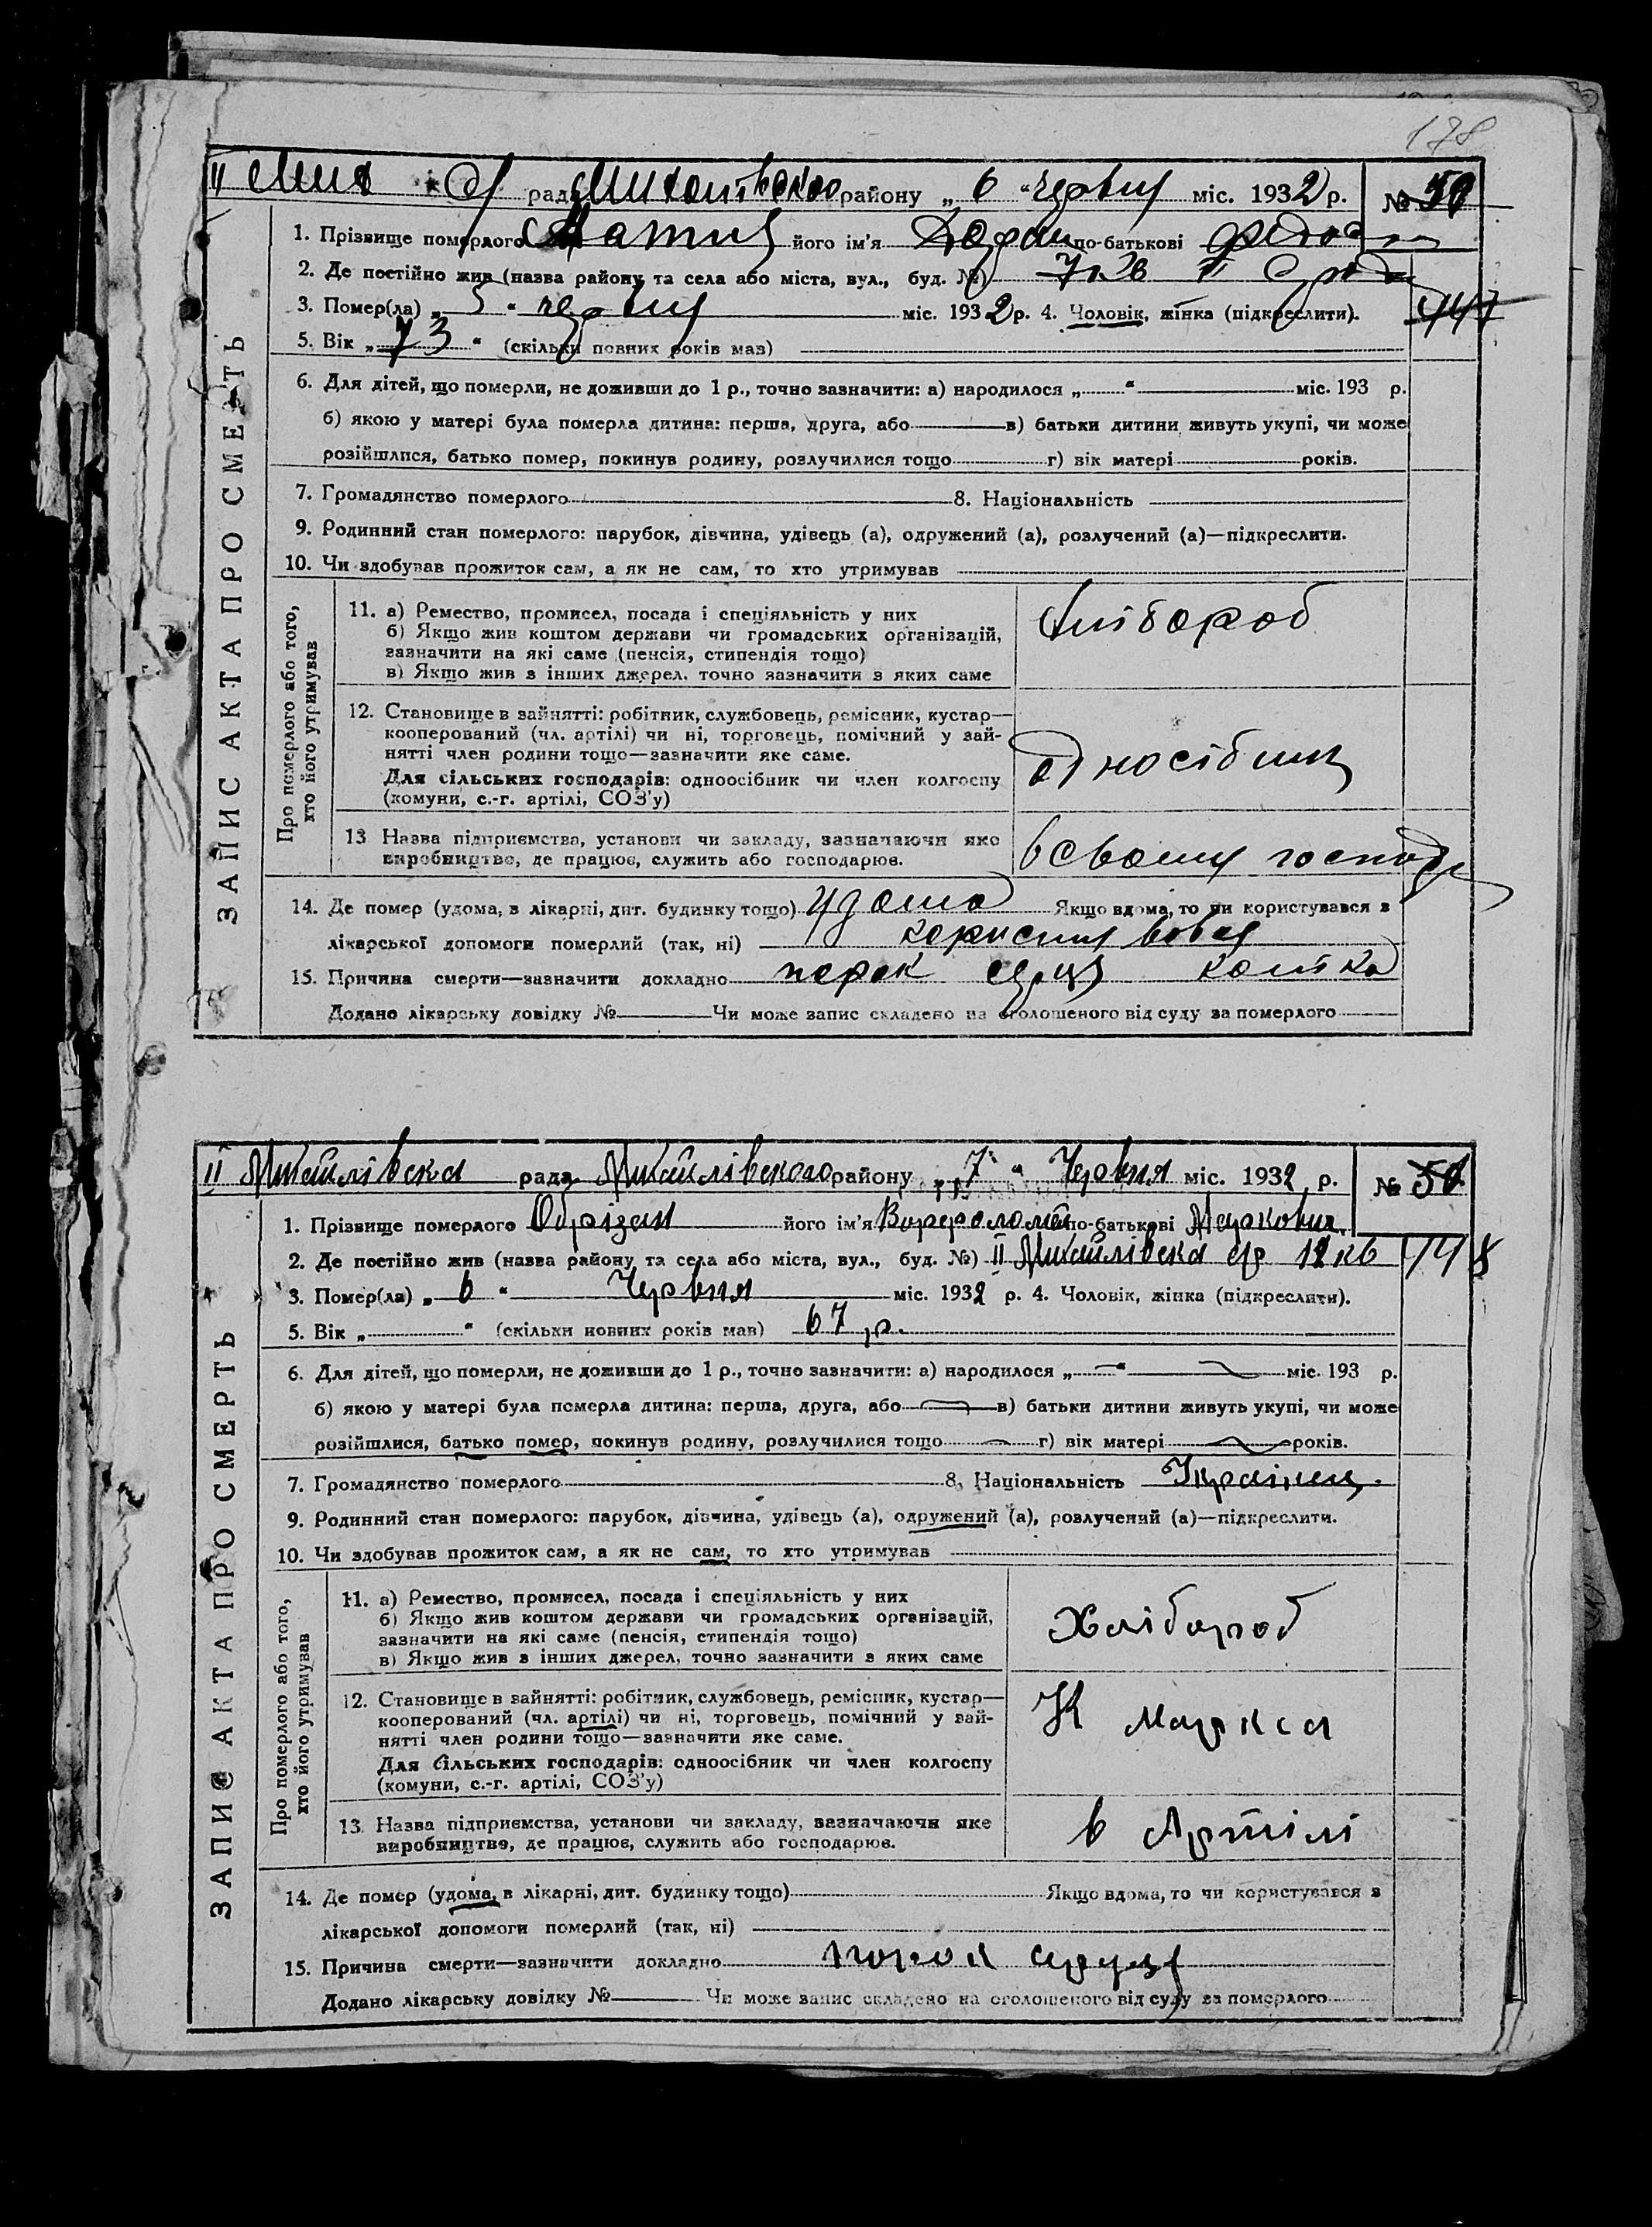 178
II Мих С/ рада Михайлівского району „ 6 “ червня міс. 1932 р. № 50
1. Прізвище померлого його ім'я по-батькові
2. Де постійно жив (назва району та села або міста, вул., буд. №) 7 кв II
3. Помер(ла) „ 5 “ червня міс. 1932 р. 4. Чоловік, жінка (підкреслити). 447
5. Вік „ 73 “ (скільки повних років мав)
6. Для дітей, що померли, не доживши до 1 р., точно зазначити: а) народилося „ “ міс. 193 р.
б) якою у матері була померла дитина: перша, друга, або в) батьки дитини живуть укупі, чи може
розійшлися, батько помер, покинув родину, розлучилися тощо г) вік матері років.
7. Громадянство померлого 8. Національність
9. Родинний стан померлого: парубок, дівчина, удівець (а), одружений (а), розлучений (а)—підкреслити.
10. Чи здобував прожиток сам, а як не сам, то хто утримував
ЗАПИС АКТА ПРО СМЕРТЬ
Про померлого або того, хто його утримував
11. а) Ремество, промисел, посада і спеціяльність у них
б) Якщо жив коштом держави чи громадських організацій,
зазначити на які саме (пенсія, стипендія тощо)
в) Якщо жив з інших джерел, точно зазначити з яких саме
хлібороб
12. Становище в зайнятті: робітник, службовець, ремісник, кустар—
кооперований (чл. артілі) чи ні, торговець, помічний у зай-
нятті член родини тощо—зазначити яке саме.
Для сільських господарів: одноосібник чи член колгоспу
(комуни, с.-г. артілі, СОЗ'у)
односібник
13 Назва підприємства, установи чи закладу, зазначаючи яке
виробництво, де працює, служить або господарює.
в своему господ
14. Де помер (удома, в лікарні, дит. будинку тощо) удома Якщо вдома, то чи користувався з
лікарської допомоги померлий (так, ні) користувався
15. Причина смерти—зазначити докладно порок серця
Додано лікарську довідку № Чи може запис складено на оголошеного від суду за померлого
II Михайлівска рада Михайлівского району „ 7 “ Червня міс. 1932 р. № 50
1. Прізвище померлого Обрізан його ім'я Ворфоломій по-батькові Маркович
2. Де постійно жив (назва району та села або міста, вул., буд. №) II Михайлівска ср 12 кв 448
3. Помер(ла) „ 6 “ Червня міс. 1932 р. 4. Чоловік, жінка (підкреслити).
5. Вік „ “ (скільки повних років мав) 67 р.
6. Для дітей, що померли, не доживши до 1 р., точно зазначити: а) народилося „ “ міс. 193 р.
б) якою у матері була померла дитина: перша, друга, або в) батьки дитини живуть укупі, чи може
розійшлися, батько помер, покинув родину, розлучилися тощо г) вік матері років.
7. Громадянство померлого 8. Національність Українец.
9. Родинний стан померлого: парубок, дівчина, удівець (а), одружений (а), розлучений (а)—підкреслити.
10. Чи здобував прожиток сам, а як не сам, то хто утримував
ЗАПИС АКТА ПРО СМЕРТЬ
Про померлого або того, хто його утримував
11. а) Ремество, промисел, посада і спеціяльність у них
б) Якщо жив коштом держави чи громадських організацій,
зазначити на які саме (пенсія, стипендія тощо)
в) Якщо жив з інших джерел, точно зазначити з яких саме
Хлібороб
12. Становище в зайнятті: робітник, службовець, ремісник, кустар—
кооперований (чл. артілі) чи ні, торговець, помічний у зай-
нятті член родини тощо—зазначити яке саме.
Для сільських господарів: одноосібник чи член колгоспу
(комуни, с.-г. артілі, СОЗ'у)
К Маркса
13. Назва підприємства, установи чи закладу, зазначаючи яке
виробництво, де працює, служить або господарює.
в Артілі
14. Де помер (удома, в лікарні, дит. будинку тощо) Якщо вдома, то чи користувався з
лікарської допомоги померлий (так, ні)
15. Причина смерти—зазначити докладно порок серця
Додано лікарську довідку № Чи може запис складено на оголошеного від суду за померлого